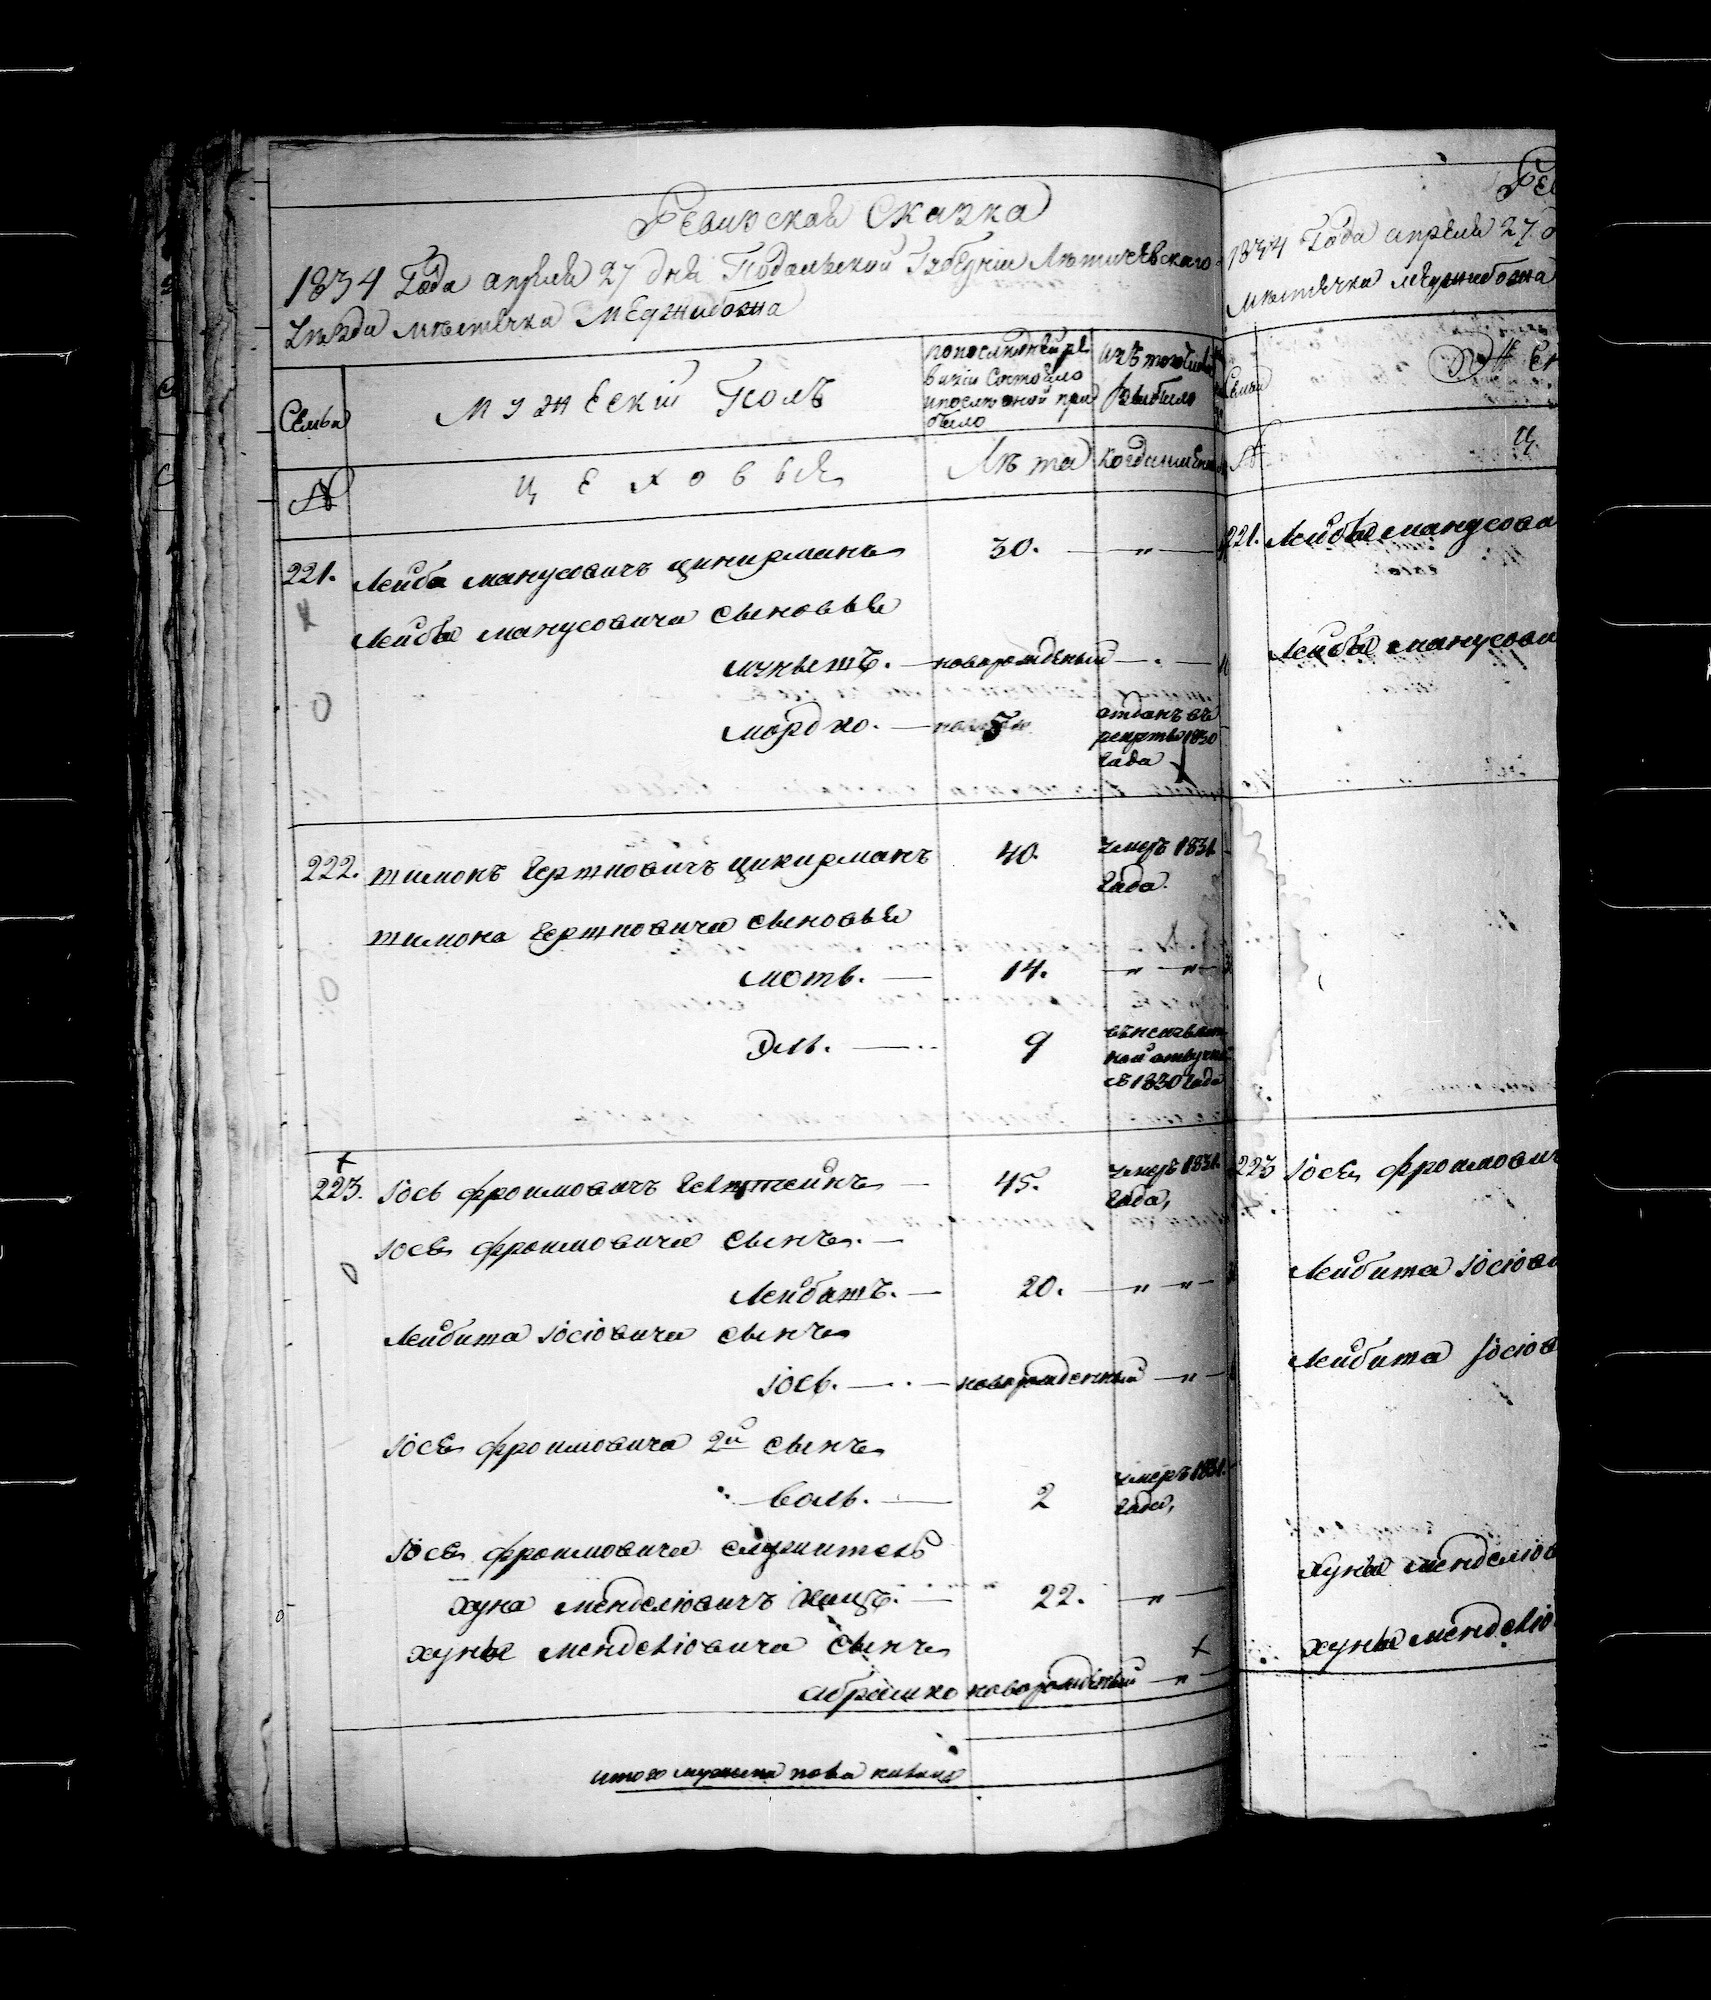 Ревизская Сказка
1834 Года апреля 27 дня Подольской Губерніи Летичевского
уезда местечка Меджибожа
Семьи
мужескій Полъ
по последней ре
визіи состояло
и после оной при
было
изъ того числа
выбыло
№
цеховыя
Лета
когда именно
221.
Лейба Манусовичъ Цикирманъ
30.
Лейбы Манусовича сыновья
новорожденый
Мордко.
5
отданъ въ
рекруты 1830
Года
222.
Шимонъ Гершковичъ Цикирманъ
40.
умеръ 1831
Года.
Шимона Гершковича сыновья
Моть.
14.
Эль.
9
въ неизвест
ной отлучке
съ 1830 Года
223.
Іось Фроимовичъ
45.
умеръ 1831.
Года,
Іося Фроимовича сынъ.
Лейбишъ.
20.
Лейбиша Іосіовича сынъ
Іось.
новорожденный
Іося Фроимовича 2й сынъ
Воль.
2
умеръ 1831.
Года,
Іося Фроимовича служитель
Хуна Менделіовичъ
22.
Хуны Менделіовича сынъ
Абрамко новорожденый
итого мужеска пола
1834 Года апреля 27
местечка Меджибожа
Семьи
№
221. Лейбы Манусова
Лейбы Манусови
223 Іося Фроимович
Лейбиша Іосіови
Лейбиша Іосіов
Хуны Менделіов
Хуны Менделіо